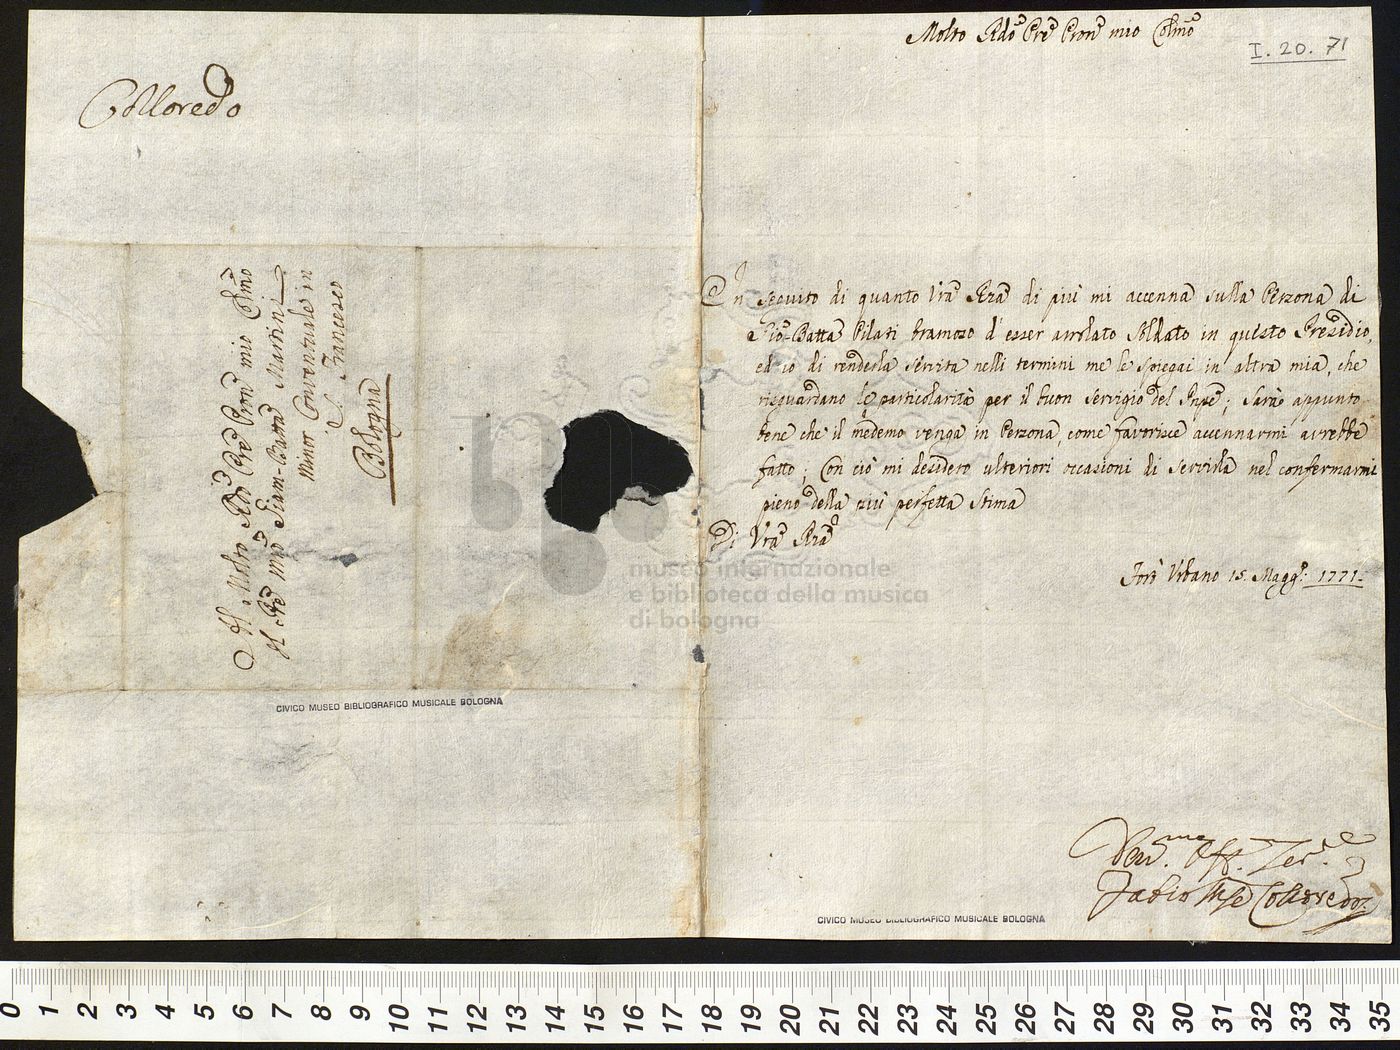 Colloredo
Al Molto Rdo Pre Pron mio Colmo
Il Pre Mro Giam-Batta Martini
Minor Conventuale in
S. Francesco
Bologna
CIVICO MUSEO BIBLIOGRAFICO MUSICALE BOLOGNA
Molto Rdo Pre Pron mio Colmo
I. 20. 71
In seguito di quanto Vra Rza di più mi accenna sulla Perzona di
Gio: Batta Pilati bramozo d'esser arrolato Soldato in questo Presidio,
ed io di renderla servita nelli termini me le spiegai in altra mia, che
risguardano le particolarità per il buon servigio del Inpe; sarà appunto
bene che il medemo venga in Perzona, come favorisce accennarmi avrebbe
fatto; Con ciò mi desidero ulteriori occasioni di servirla nel confermarmi
pieno della più perfetta stima
Di Vra Rza
Forte Urbano 15. Magg: 1771.
museo internazionale
e biblioteca della musica
di bologna
Aff. Ser.
Fabio Colloredo
CIVICO MUSEO BIBLIOGRAFICO MUSICALE BOLOGNA
0 1 2 3 4 5 6 7 8 9 10 11 12 13 14 15 16 17 18 19 20 21 22 23 24 25 26 27 28 29 30 31 32 33 34 35